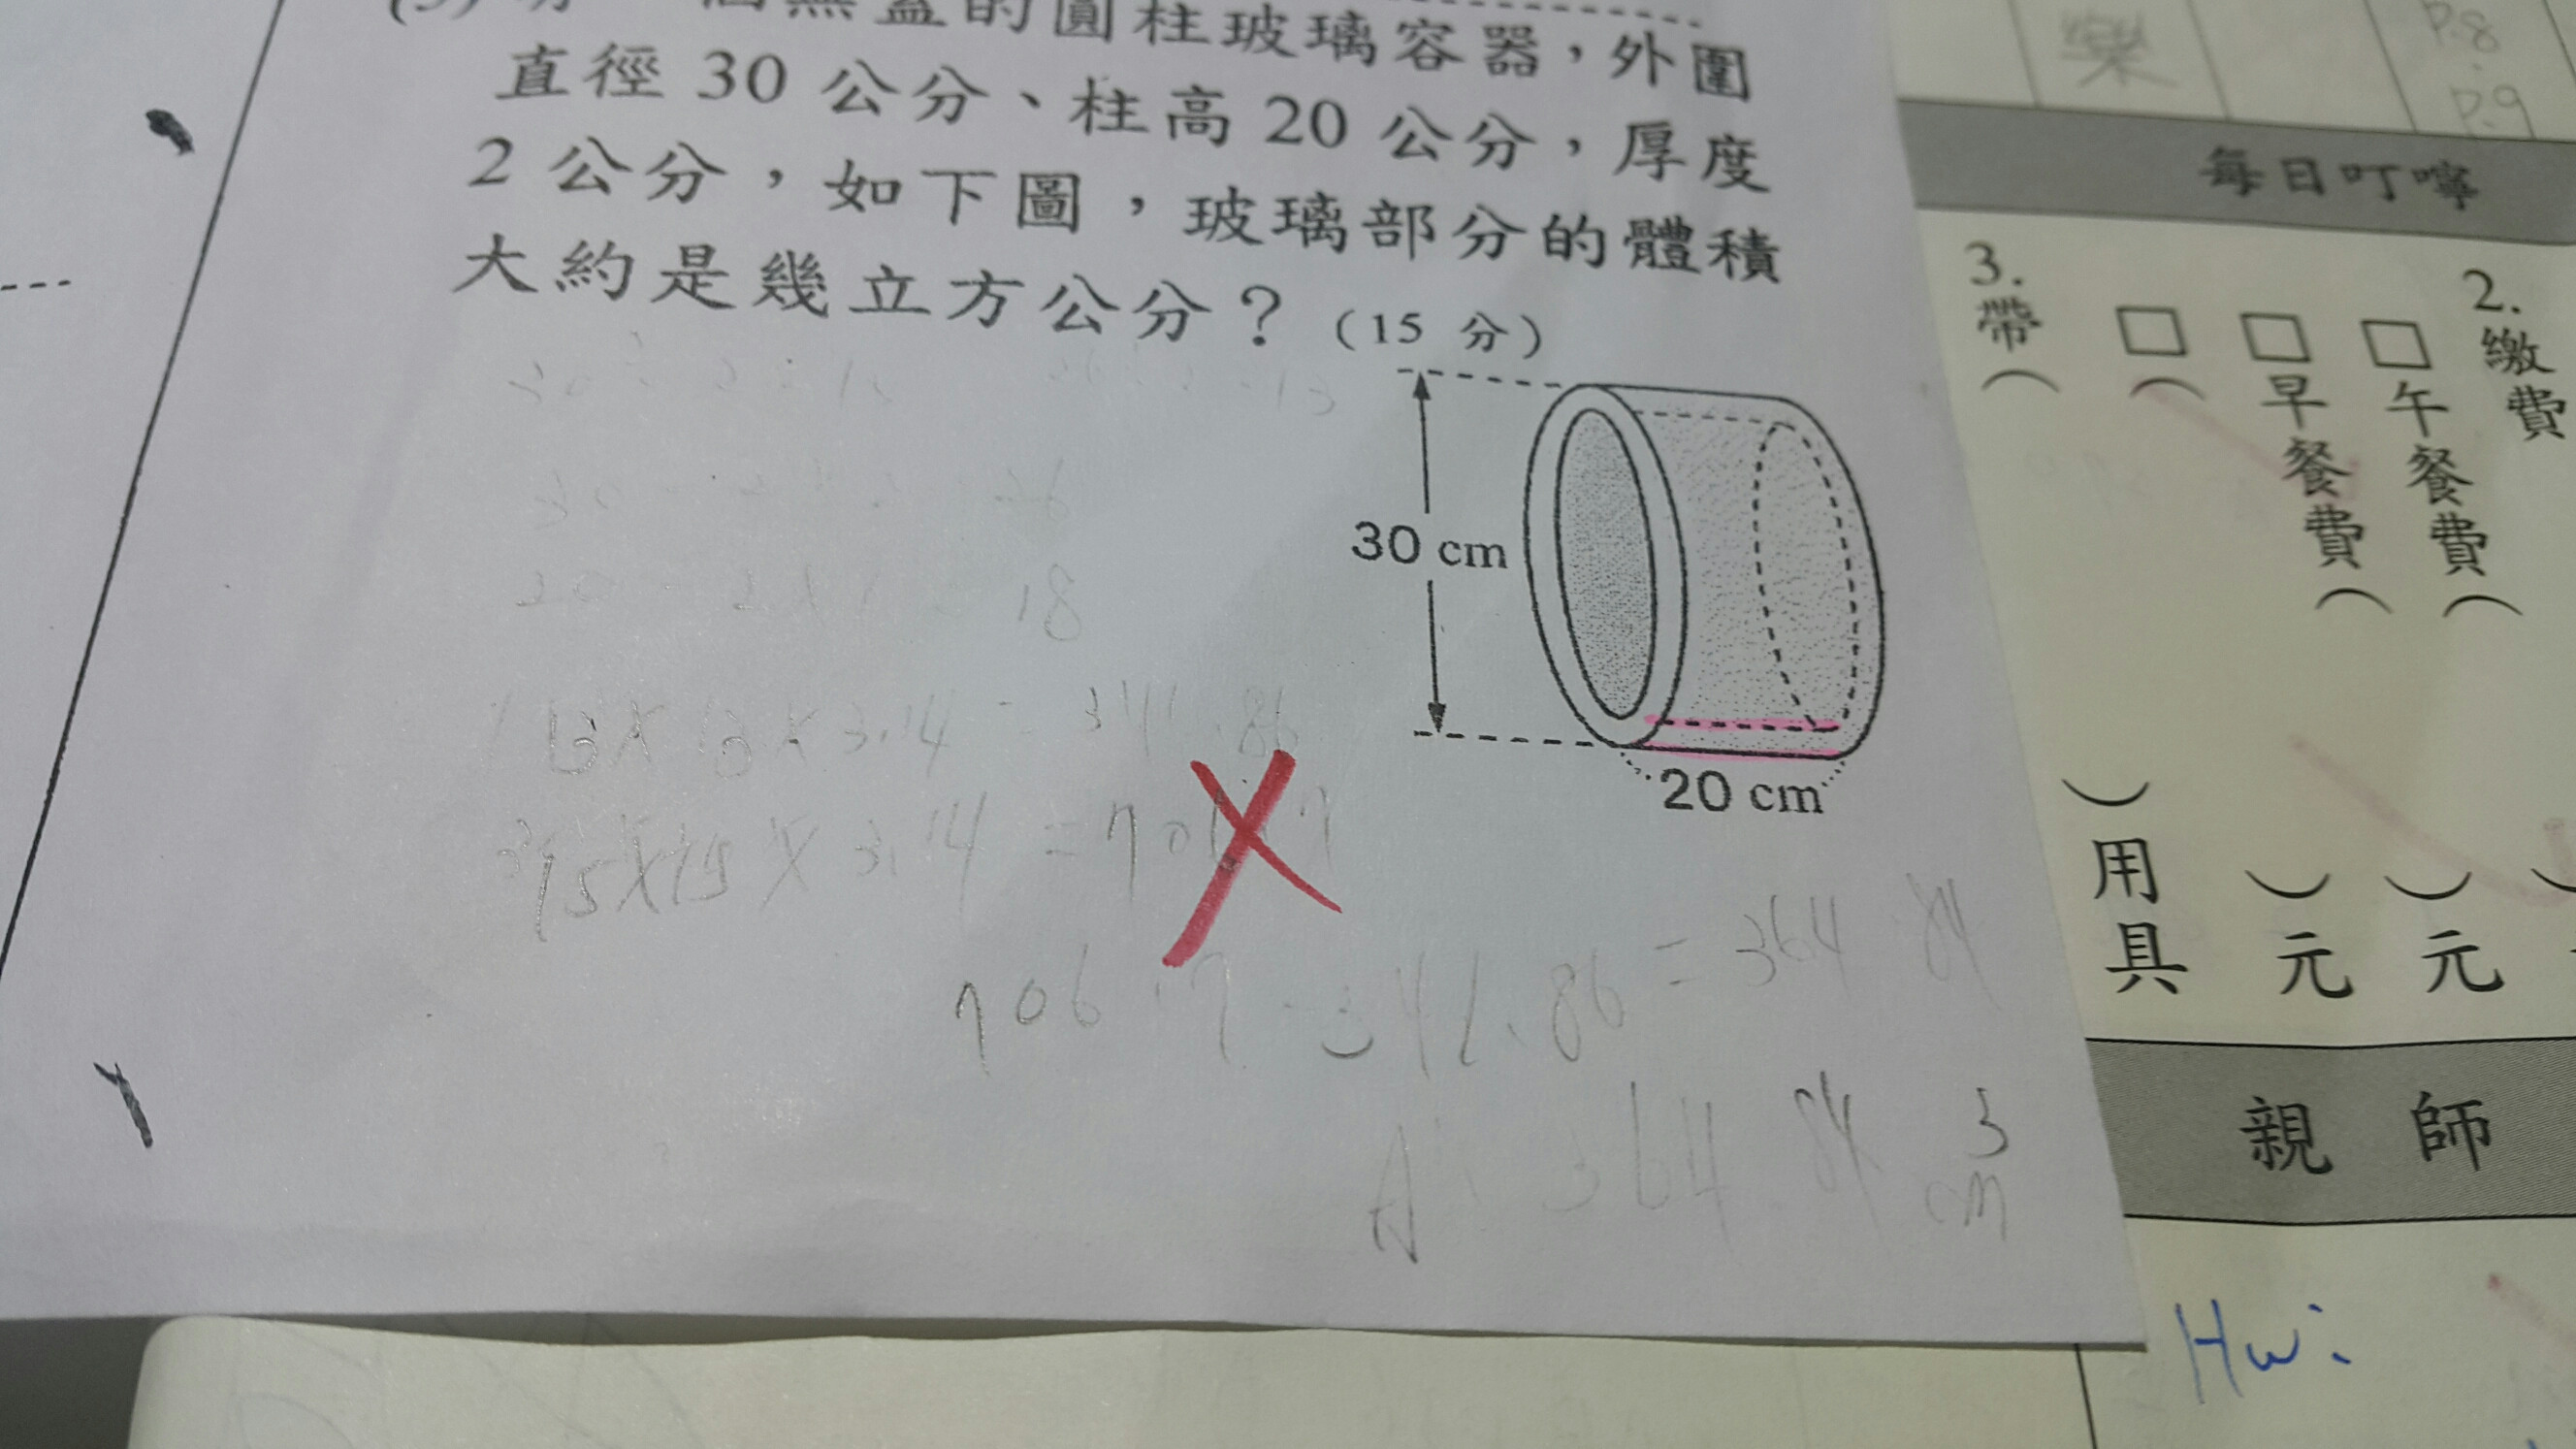 無蓋的圓柱玻璃容器，外圍
直徑 30 公分、柱高 20 公分，厚度
2 公分，如下圖，玻璃部分的體積
大約是幾立方公分？（15 分）
30 cm
20 cm
18
13×13×3.14=341.86
15×15×3.14=70
706.7-341.86=364.84
A: 364.84 cm3
樂
P.8
P.9
每日叮嚀
2.繳費
□午餐費（ ）元
□早餐費（ ）元
□（
3.帶（ ）用具
親師
Hw: